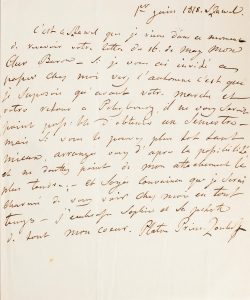 1er juin 1818. Rawel
C'est à Rawel que je viens dans ce moment
de recevoir votre lettre du 16. de may mon
cher Baron - si je vous ai invité à
passer chez moi vers l'automne c'est que
je supposois qu'avant votre marche et
votre retour à Petersbourg, il ne vous seroit
point possible d'obtenir un Semestre
mais si vous le pouvez plus tôt tant
mieux, arrangez vous d'après la possibilité
et ne doutez point de mon attachement le
plus tendre. - et soyez convaincu que je serai
charmé de vous voir chez moi en tout
temps - j'embrasse Sophie et
de tout mon coeur. Platon Prince Zouboff